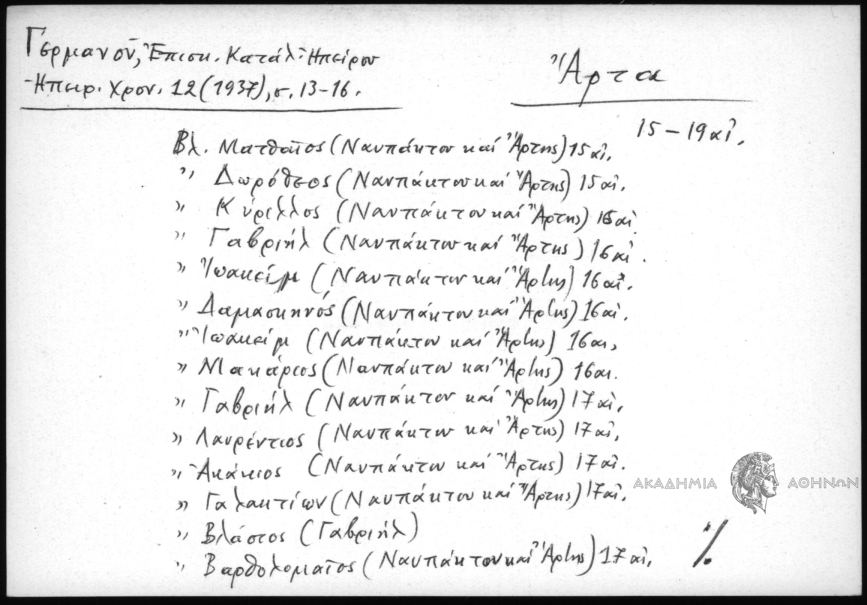 Γερμανοῦ, Ἐπισκ. Κατάλ. Ἠπείρου
Ἠπειρ. Χρον. 12 (1937), σ. 13-16.
Ἄρτα
15-19 αἰ.
Βλ. Ματθαῖος (Ναυπάκτου καί Ἄρτης) 15 αἰ.
" Δωρόθεος (Ναυπάκτου καί Ἄρτης) 15 αἰ.
" Κύριλλος (Ναυπάκτου καί Ἄρτης) 16 αἰ
" Γαβριήλ (Ναυπάκτου καί Ἄρτης) 16 αἰ.
" Ἰωακείμ (Ναυπάκτου καί Ἄρτης) 16 αἰ.
" Δαμασκηνός (Ναυπάκτου καί Ἄρτης) 16 αἰ.
" Ἰωακείμ (Ναυπάκτου καί Ἄρτης) 16 αι.
" Μακάριος (Ναυπάκτου καί Ἄρτης) 16 αι.
" Γαβριήλ (Ναυπάκτου καί Ἄρτης) 17 αἰ.
" Λαυρέντιος (Ναυπάκτου καί Ἄρτης) 17 αἰ.
" Ἀκάκιος (Ναυπάκτου καί Ἄρτης) 17 αι.
" Γαλακτίων (Ναυπάκτου καί Ἄρτης) 17 αἰ.
" Βλάσιος (Γαβριήλ)
" Βαρθολομαῖος (Ναυπάκτου καί Ἄρτης) 17 αἰ.
./.
ΑΚΑΔΗΜΙΑ ΑΘΗΝΩΝ